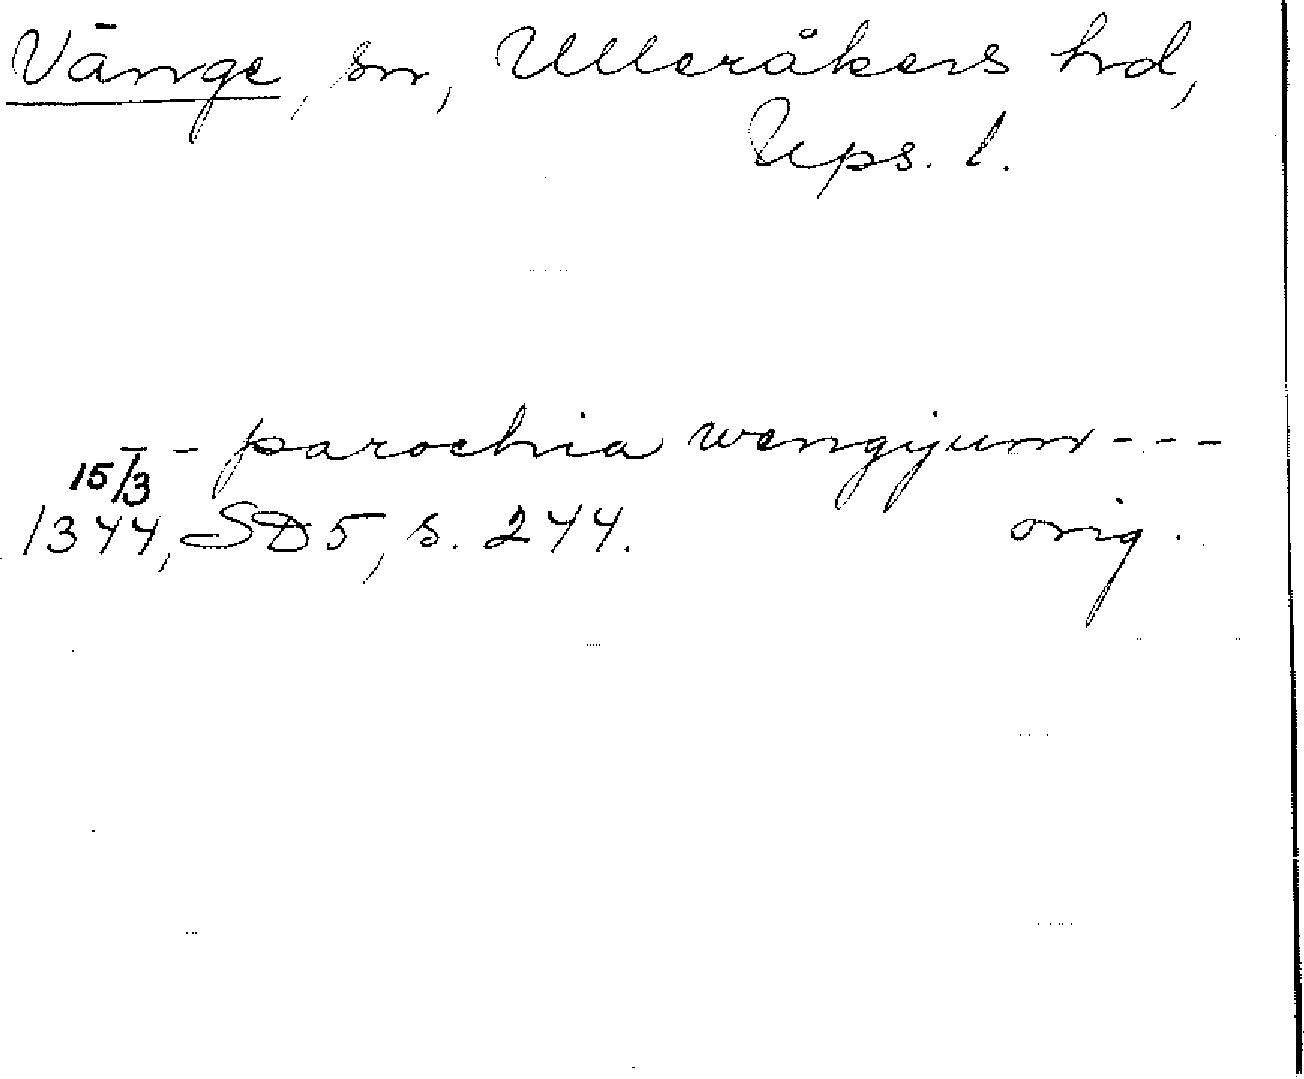 Vänge, sn, Ulleråkers hd,
Ups. l.
- - parochia wengijum - - -
15/3
1344, SD 5, s. 244. orig.